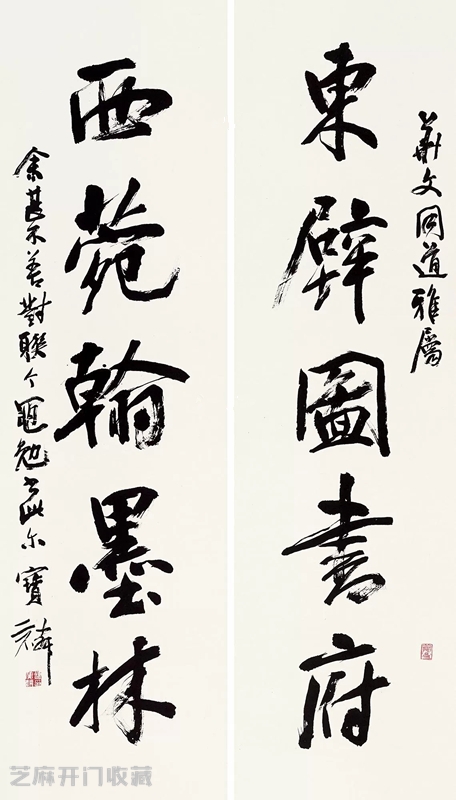 華文同道雅屬
東壁圖書府
西苑翰墨林
余甚不善對聯今黽勉書此尔寶麟
芝麻开门收藏